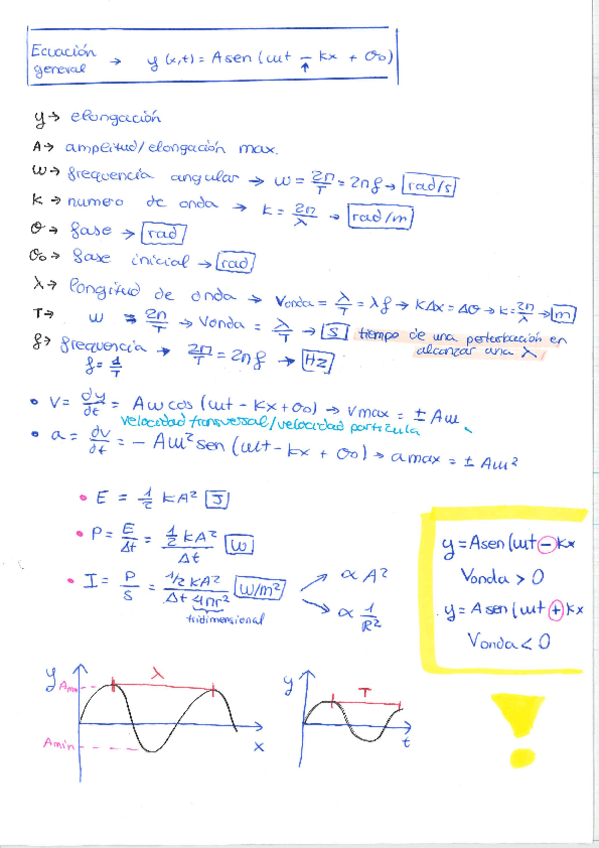 Ecuación general → y(x,t) = A sen (ωt − kx + θ₀)
↑
y → elongación
A → amplitud/elongación max.
ω → frequencia angular → ω = 2π/T = 2πf → rad/s
k → numero de onda → k = 2π/λ → rad/m
θ → fase → rad
θ₀ → fase inicial → rad
λ → longitud de onda → Vonda = λ/T = λf → kΔx = Δθ → k = 2π/λ → m
T → ω = 2π/T → Vonda = λ/T → s tiempo de una perturbación en
alcanzar una λ
f → frequencia → 2π/T = 2πf → Hz
f = 1/T
• V = dy/dt = Aω cos (ωt − kx + θ₀) → vmax = ± Aω
velocidad transversal/velocidad partícula
• a = dv/dt = − Aω² sen (ωt − kx + θ₀) → amax = ± Aω²
• E = 1/2 kA² J
• P = E/Δt = 1/2 kA²/Δt W
• I = P/S = 1/2 kA²/Δt 4πr² W/m² → ∝ A²
→ ∝ 1/R²
tridimensional
y = A sen (ωt − kx
Vonda > 0
y = A sen (ωt + kx
Vonda < 0
y Amax λ x Amin
y T t
!